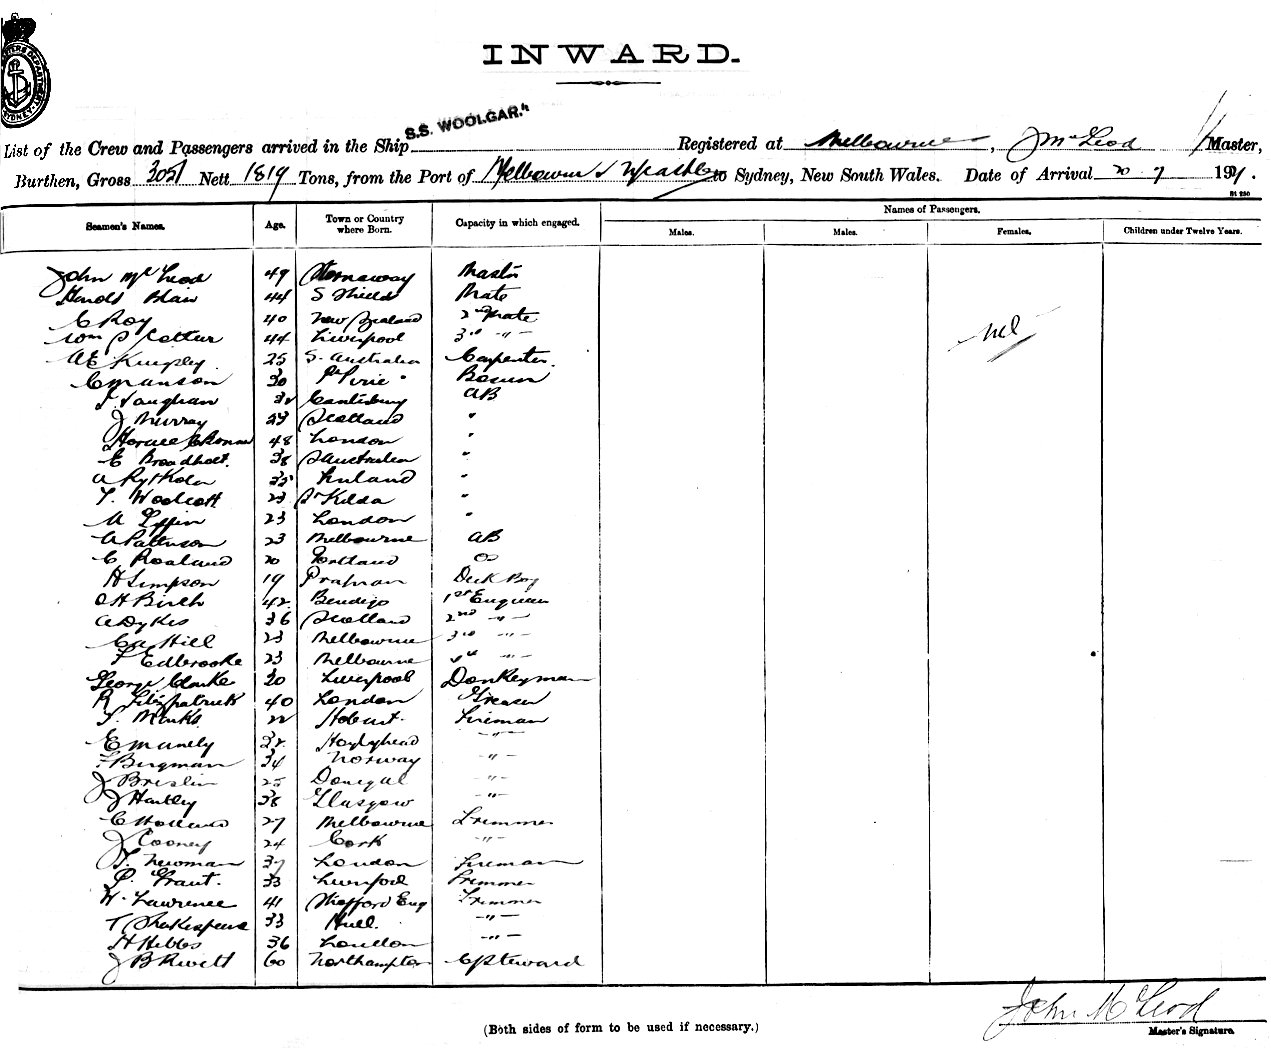 INWARD.
S.S. WOOLGAR.
List of the Crew and Passengers arrived in the Ship Registered at Melbourne, J McLeod Master,
Burthen, Gross Nett 1819 Tons, from the Port of Melbourne to Sydney, New South Wales. Date of Arrival 20 7 191
Seamen's Names. Age. Town or Country where Born. Capacity in which engaged. Names of Passengers.
Males. Males. Females. Children under Twelve Years.
John McLeod 49 Stornaway Master
Harold Blair 44 S Shields Mate
C Roy 40 New Zealand 2nd Mate
Wm S Cottur 44 Liverpool 3rd " nil
A E Kingsley 25 S. Australia Carpenter
C Manson 30 Pt Pirie " Bosun
Vaughan 32 Canterbury AB
J Murray 23 Scotland "
Horace C Bonner 48 London "
E Broadholt. 38 S Australia "
A Rytkola 35 Finland "
T. Woolcott 23 St Kilda "
23 London "
A Patterson 23 Melbourne AB
C Roaland 20 Portland OS
H Simpson 19 Prahran Deck Boy
C H Birch 42 Bendigo 1st Engineer
A Dykes 36 Scotland 2nd "
C A Hill 23 Melbourne 3rd "
F Edbrooke 23 Melbourne 4th "
George Clarke 30 Liverpool Donkeyman
R Fitzpatrick 40 London Greaser
T. Minks 22 Hobart. Fireman
E Manely 32 Holyhead "
Bergman 34 Norway "
J Breslin 25 Donegal "
J Hartley 38 Glasgow "
C Holland 27 Melbourne Trimmer
J Cooney 24 Cork "
T. Newman 37 London Fireman
P. Grant. 33 Liverpool Trimmer
W. Lawrence 41 Shefford Eng Trimmer
T Shakespeare 33 Hull. "
H Hibbs 36 London "
J B Rivett 60 Northampton C/Steward
John McLeod
Master's Signature.
(Both sides of form to be used if necessary.)